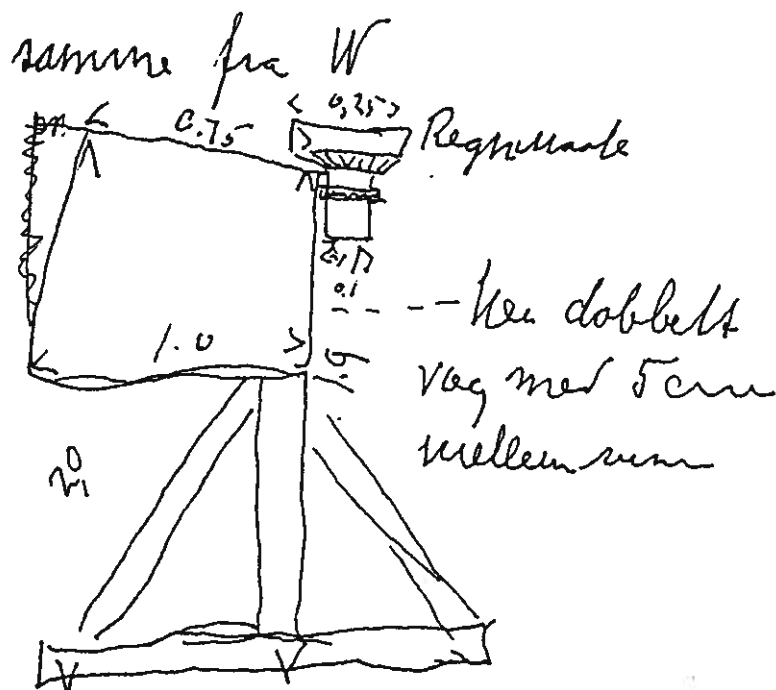 samme fra W
0,25
0.75
Regnmaale
0.1
1.0
Her dobbelt
væg med 5 cm
mellemrum